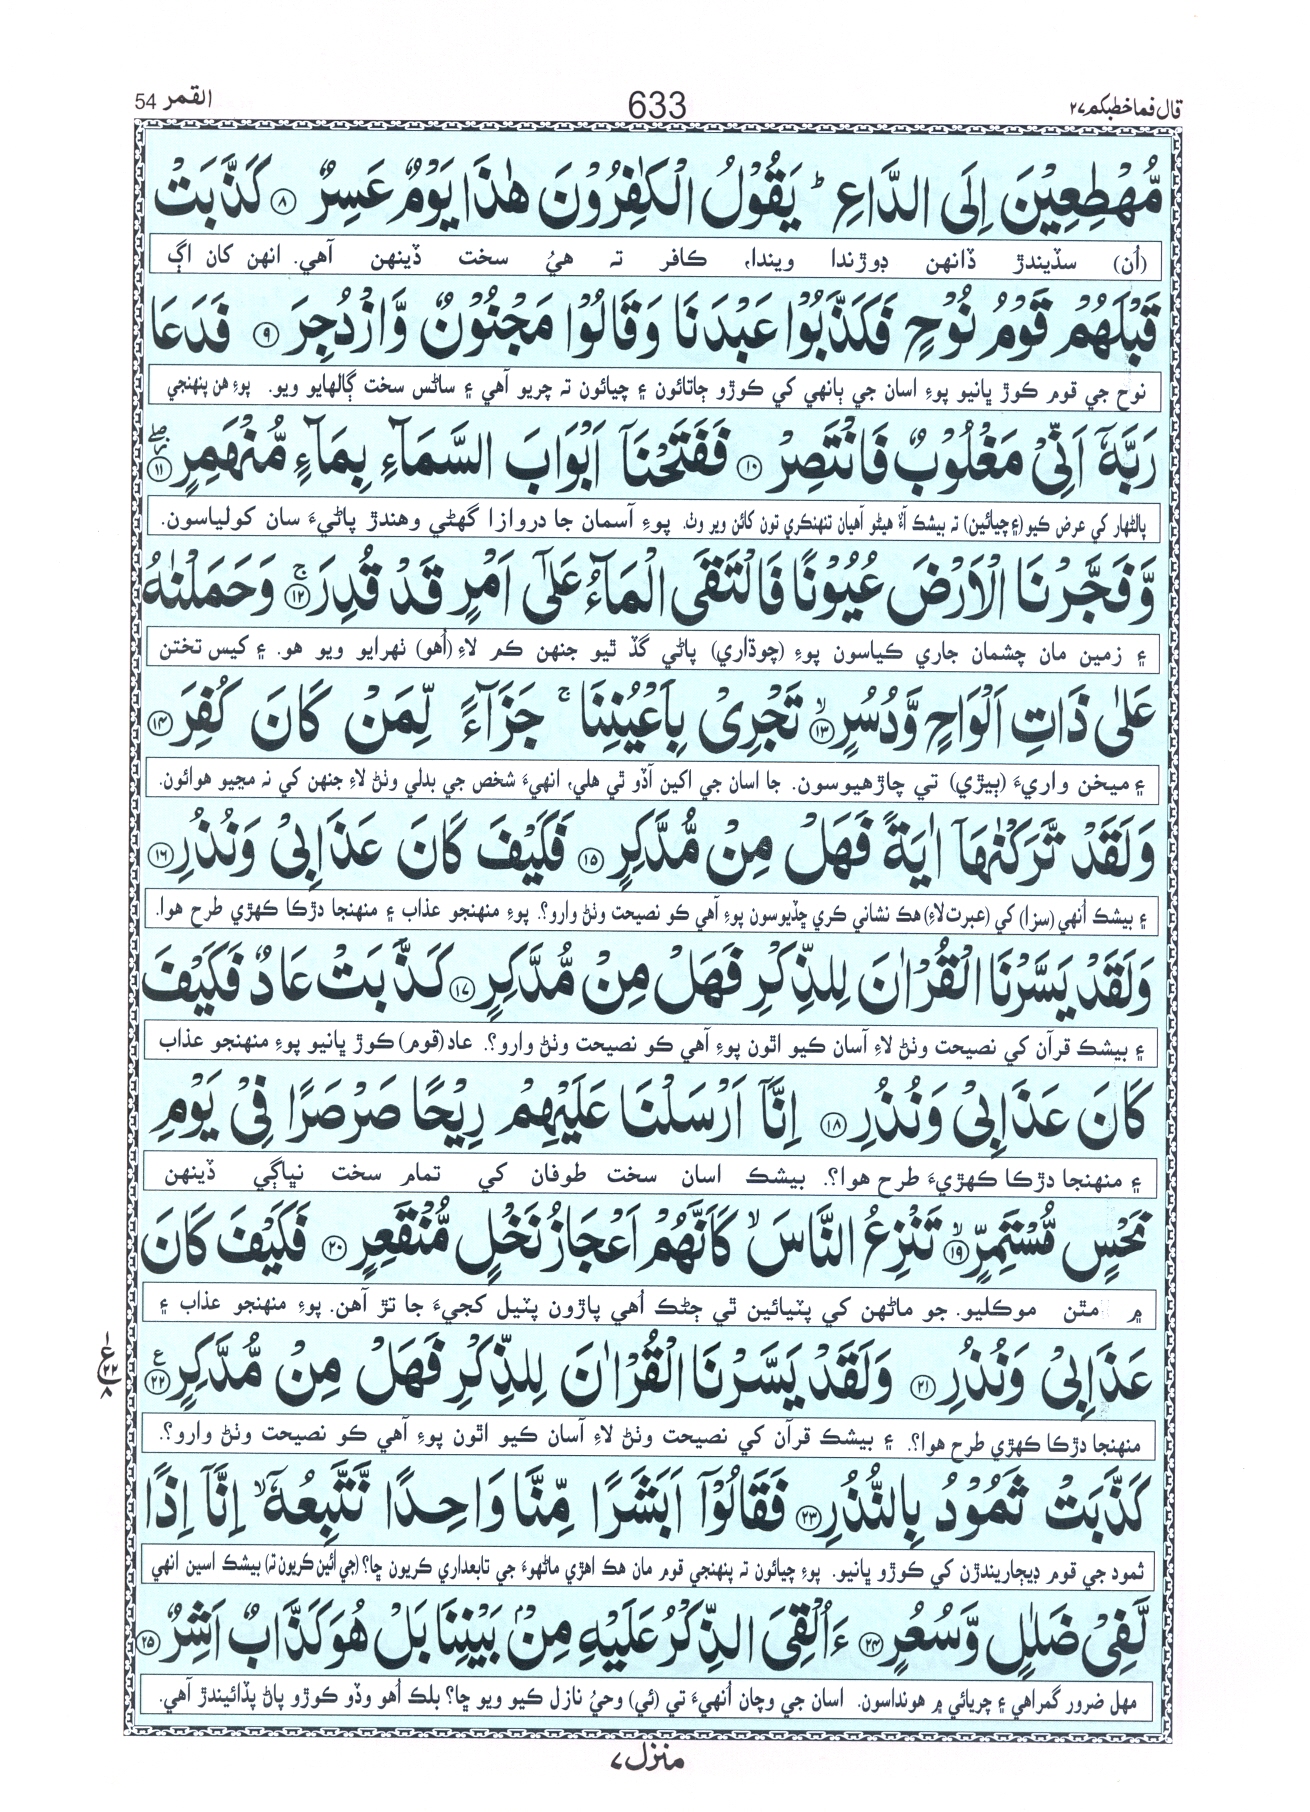 قال فماخطبكم ٢٧
633
القمر 54
مُّهْطِعِيْنَ اِلَى الدَّاعِ ؕ يَقُوْلُ الْكٰفِرُوْنَ هٰذَا يَوْمٌ عَسِرٌ ﴿٨﴾ كَذَّبَتْ
(اُن) سڏيندڙ ڏانهن ڊوڙندا ويندا، ڪافر تہ هيُ سخت ڏينهن آهي. انهن کان اڳ
قَبْلَهُمْ قَوْمُ نُوْحٍ فَكَذَّبُوْا عَبْدَنَا وَقَالُوْا مَجْنُوْنٌ وَّازْدُجِرَ ﴿٩﴾ فَدَعَا
نوح جي قوم ڪوڙ ڀانيو پوءِ اسان جي ٻانهي کي ڪوڙو ڄاتائون ۽ چيائون تہ چريو آهي ۽ ساڻس سخت ڳالهايو ويو. پوءِ هن پنهنجي
رَبَّهٗۤ اَنِّىْ مَغْلُوْبٌ فَانْتَصِرْ ﴿١٠﴾ فَفَتَحْنَاۤ اَبْوَابَ السَّمَآءِ بِمَآءٍ مُّنْهَمِرٍ ﴿١١﴾
پالڻهار کي عرض ڪيو (۽ چيائين) تہ بيشڪ آءٌ هيڻو آهيان تنهنڪري تون کائن وير وٺ. پوءِ آسمان جا دروازا گهڻي وهندڙ پاڻيءَ سان کولياسون.
وَّفَجَّرْنَا الْاَرْضَ عُيُوْنًا فَالْتَقَى الْمَآءُ عَلٰٓى اَمْرٍ قَدْ قُدِرَ ﴿١٢﴾ۚ وَحَمَلْنٰهُ
۽ زمين مان چشمان جاري ڪياسون پوءِ (چوڌاري) پاڻي گڏ ٿيو جنهن ڪم لاءِ (اُهو) ٺهرايو ويو هو. ۽ کيس تختن
عَلٰى ذَاتِ اَلْوَاحٍ وَّدُسُرٍ ﴿١٣﴾ۙ تَجْرِىْ بِاَعْيُنِنَا ۚ جَزَآءً لِّمَنْ كَانَ كُفِرَ ﴿١٤﴾
۽ ميخن واريءَ (ٻيڙي) تي چاڙهيوسون. جا اسان جي اکين آڏو ٿي هلي، انهيءَ شخص جي بدلي وٺڻ لاءِ جنهن کي نہ مڃيو هوائون.
وَلَقَدْ تَّرَكْنٰهَاۤ اٰيَةً فَهَلْ مِنْ مُّدَّكِرٍ ﴿١٥﴾ فَكَيْفَ كَانَ عَذَابِىْ وَنُذُرِ ﴿١٦﴾
۽ بيشڪ اُنهي (سزا) کي (عبرت لاءِ) هڪ نشاني ڪري ڇڏيوسون پوءِ آهي ڪو نصيحت وٺڻ وارو؟. پوءِ منهنجو عذاب ۽ منهنجا دڙڪا ڪهڙي طرح هوا.
وَلَقَدْ يَسَّرْنَا الْقُرْاٰنَ لِلذِّكْرِ فَهَلْ مِنْ مُّدَّكِرٍ ﴿١٧﴾ كَذَّبَتْ عَادٌ فَكَيْفَ
۽ بيشڪ قرآن کي نصيحت وٺڻ لاءِ آسان ڪيو اٿون پوءِ آهي ڪو نصيحت وٺڻ وارو؟. عاد (قوم) ڪوڙ ڀانيو پوءِ منهنجو عذاب
كَانَ عَذَابِىْ وَنُذُرِ ﴿١٨﴾ اِنَّاۤ اَرْسَلْنَا عَلَيْهِمْ رِيْحًا صَرْصَرًا فِىْ يَوْمِ
۽ منهنجا دڙڪا ڪهڙيءَ طرح هوا؟. بيشڪ اسان سخت طوفان کي تمام سخت نڀاڳي ڏينهن
نَحْسٍ مُّسْتَمِرٍّ ﴿١٩﴾ۙ تَنْزِعُ النَّاسَ ۙ كَاَنَّهُمْ اَعْجَازُ نَخْلٍ مُّنْقَعِرٍ ﴿٢٠﴾ فَكَيْفَ كَانَ
۾ مٿن موڪليو. جو ماڻهن کي پٽيائين ٿي ڄڻڪ اُهي پاڙون پٽيل کجيءَ جا تڙ آهن. پوءِ منهنجو عذاب ۽
عَذَابِىْ وَنُذُرِ ﴿٢١﴾ وَلَقَدْ يَسَّرْنَا الْقُرْاٰنَ لِلذِّكْرِ فَهَلْ مِنْ مُّدَّكِرٍ ﴿٢٢﴾ ع
١ ع ٢٢ ٨
منهنجا دڙڪا ڪهڙي طرح هوا؟. ۽ بيشڪ قرآن کي نصيحت وٺڻ لاءِ آسان ڪيو اٿون پوءِ آهي ڪو نصيحت وٺڻ وارو؟.
كَذَّبَتْ ثَمُوْدُ بِالنُّذُرِ ﴿٢٣﴾ فَقَالُوْۤا اَبَشَرًا مِّنَّا وَاحِدًا نَّتَّبِعُهٗۤ ۙ اِنَّاۤ اِذًا
ثمود جي قوم ڊيڄاريندڙن کي ڪوڙو ڀانيو. پوءِ چيائون تہ پنهنجي قوم مان هڪ اهڙي ماڻهوءَ جي تابعداري ڪريون ڇا؟ (جي ائين ڪريون تہ) بيشڪ اسين انهي
لَّفِىْ ضَلٰلٍ وَّسُعُرٍ ﴿٢٤﴾ ءَاُلْقِىَ الذِّكْرُ عَلَيْهِ مِنْۢ بَيْنِنَا بَلْ هُوَ كَذَّابٌ اَشِرٌ ﴿٢٥﴾
مهل ضرور گمراهي ۽ چريائي ۾ هونداسون. اسان جي وچان اُنهيءَ تي (ئي) وحيُ نازل ڪيو ويو ڇا؟ بلڪ اُهو وڏو ڪوڙو پاڻ پڏائيندڙ آهي.
منزل ٧